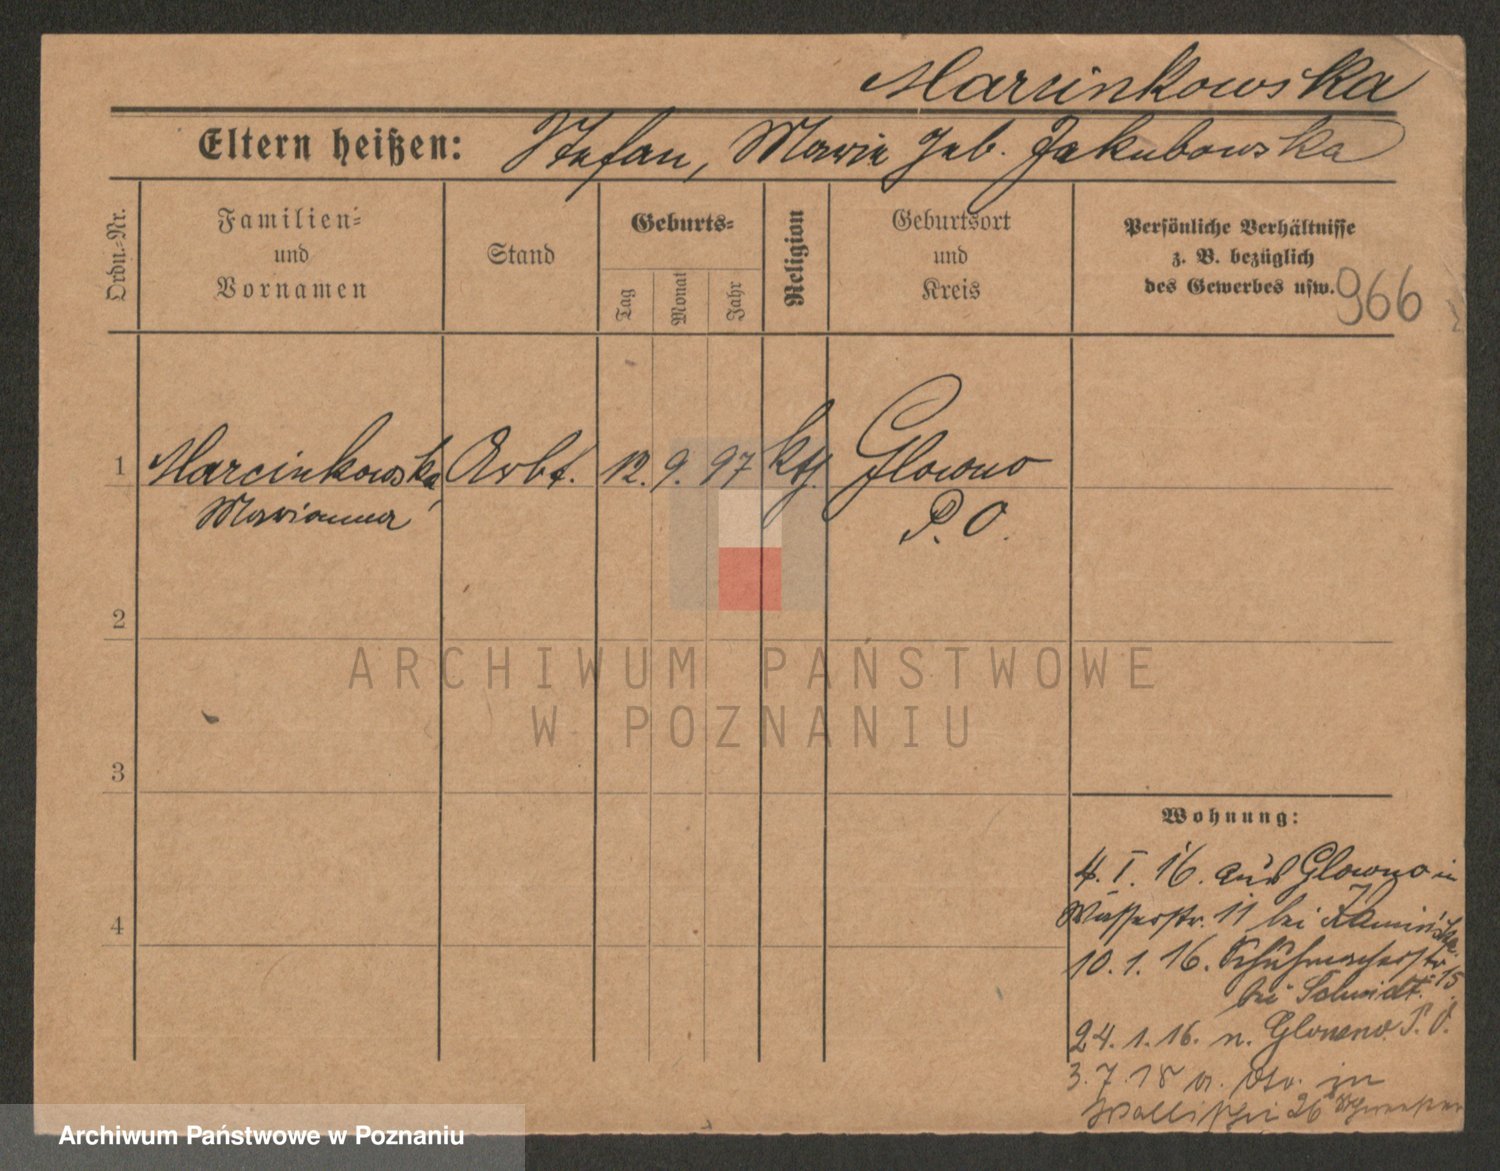 Marcinkowska
Eltern heißen: Stefan, Marie geb. Jakubowska
Ordn.-Nr.
Familien-
und
Vornamen
Stand
Geburts-
Tag
Monat
Jahr
Religion
Geburtsort
und
Kreis
Persönliche Verhältnisse
z. B. bezüglich
des Gewerbes usw.
966
1 Marcinkowska, Arbt. 12. 9. 97 kth. Glowno
Marianna P. O.
2
3
4
ARCHIWUM PAŃSTWOWE
W POZNANIU
Wohnung:
4. I. 16. aus Glowno in
Wasserstr. 11 bei Kaminska.
10. 1. 16. Schuhmacherstr. 15
bei Schmidt.
24. 1. 16. n. Glowno P. O.
3. 7. 18 v. dto. in
Wallischei 26
Archiwum Państwowe w Poznaniu